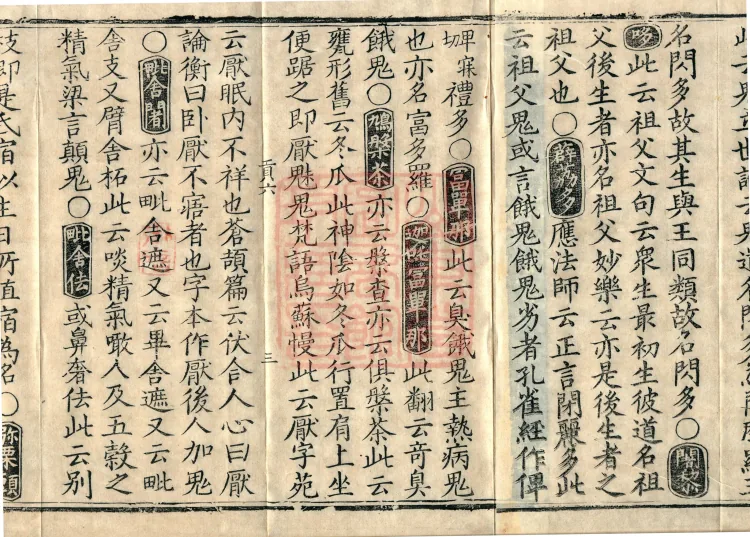 名閃多故其生與王同類故名閃多〇閻
哆此云祖父文句云衆生最初生彼道名祖
父後生者亦名祖父妙樂云亦是後生者之
祖父也〇薜荔多應法師云正言閉麗多此
云祖父鬼或言餓鬼餓鬼劣者孔雀經作俾
禮多〇富單那此云臭餓鬼主熱病鬼
也亦名富多羅〇迦吒富單那此翻云奇臭
餓鬼〇鳩槃茶亦云槃查亦云俱槃茶此云
甕形舊云冬瓜此神陰如冬瓜行置肩上坐
便踞之即厭魅鬼梵語烏蘇慢此云厭字苑
貢六
三
云厭眠內不祥也蒼頡篇云伏合人心曰厭
論衡曰卧厭不寤者也字本作厭後人加鬼
〇毗舍闍亦云毗舍遮又云畢舍遮又云毗
舍支又臂舍柘此云啖精氣噉人及五穀之
精氣梁言顛鬼〇毗舍佉或鼻奢佉此云別
枝即是氐宿以生日所直宿為名〇